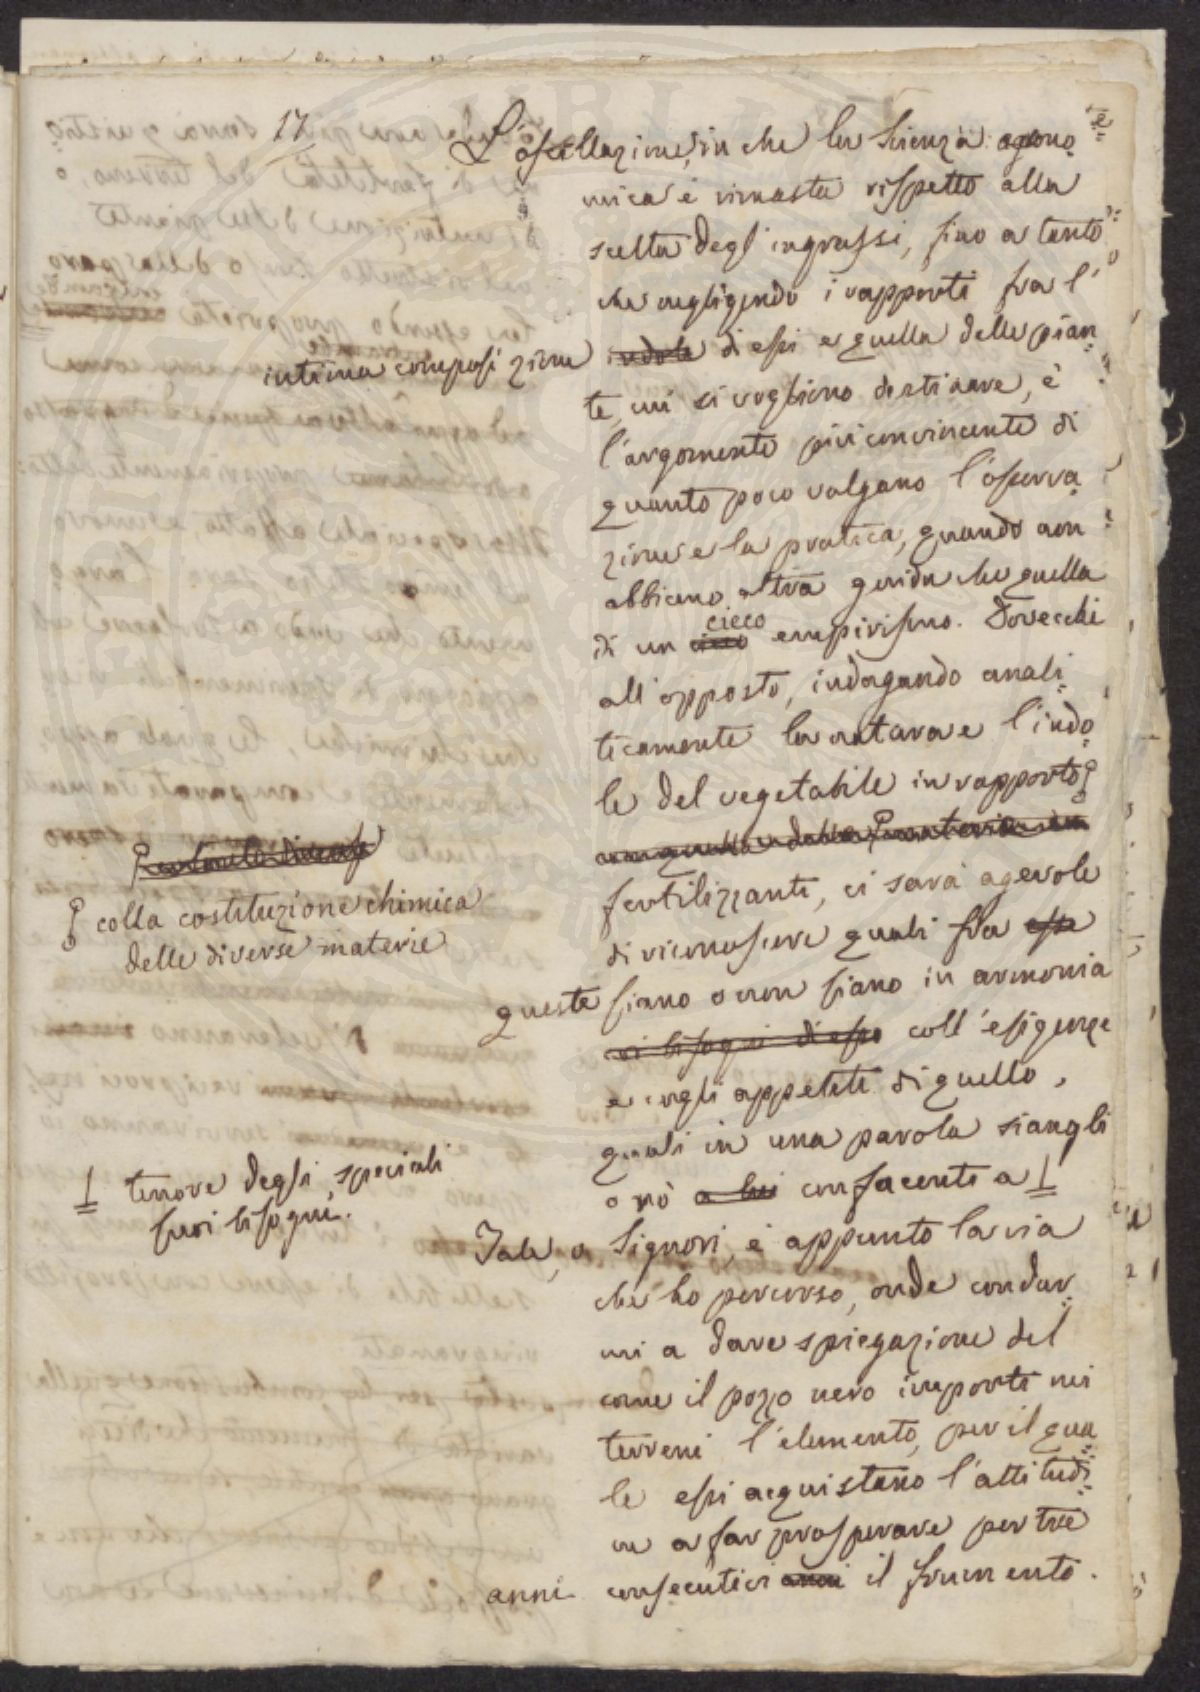 17
L'oscillazione, in che la Scienza agrono
mica è rimasta rispetto alla
scelta degl'ingrassi, fino a tanto
che negligendo i rapporti fra l'
intima composizione indole di essi e quella delle pian
te, cui si vogliono destinare, è
l'argomento più convincente di
quanto poco valgano l'osserva
zione e la pratica, quando non
abbiano altra guida che quella
cieco
di un cieco empirismo. Dovecchè
all'opposto, indagando anali
ticamente la natura e l'indo
le del vegetabile in rapporto
colla costituzione chimica
delle diverse materie
fertilizzanti, ci sarà agevole
di riconoscere quali fra esse
queste siano o non siano in armonia
ai bisogni di esso coll'esigenze
e cogli appetiti di quello,
quali in una parola siangli
o nò a lui confacenti a
tenore degli speciali
suoi bisogni.
Tale, o Signori, è appunto la via
che ho percorso, onde condur
mi a dare spiegazione del
come il pozzo nero importi nei
terreni l'elemento, per il qua
le essi acquistano l'attitudi
ne a far prosperare per tre
anni consecutivi anni il frumento.